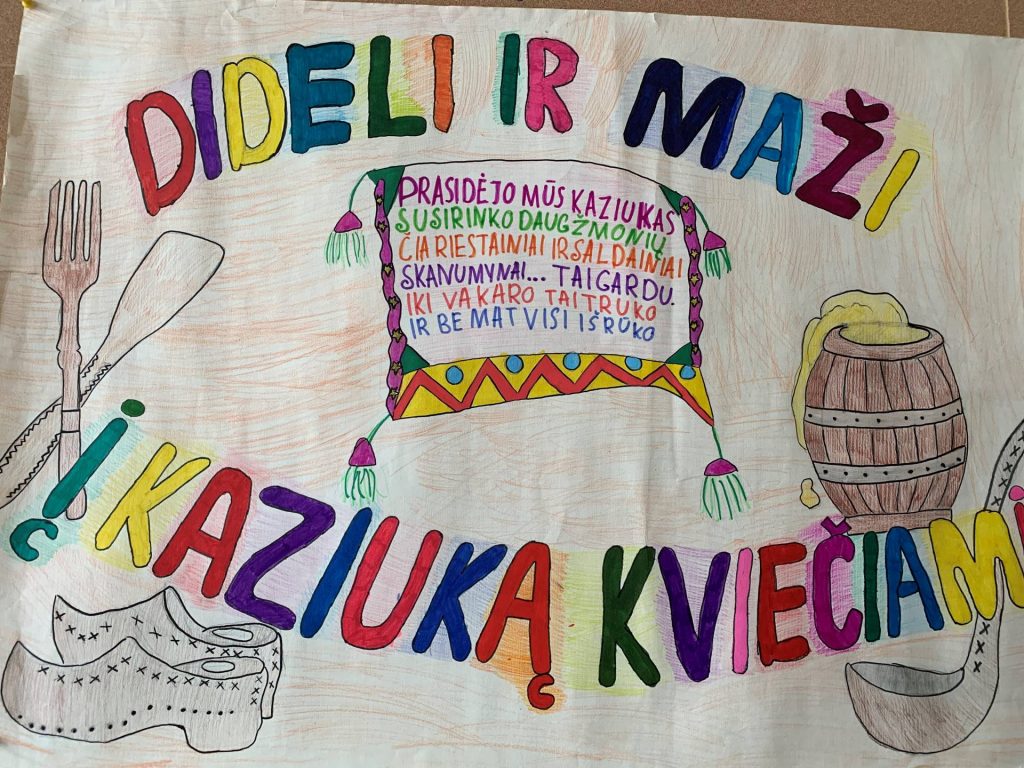 DIDELI IR MAŽI
PRASIDĖJO MŪS KAZIUKAS
SUSIRINKO DAUG ŽMONIŲ.
ČIA RIESTAINIAI IR SALDAINIAI
SKANUMYNAI... TAI GARDU.
IKI VAKARO TAI TRUKO
IR BE MAT VISI IŠRŪKO
Į KAZIUKĄ KVIEČIAMI